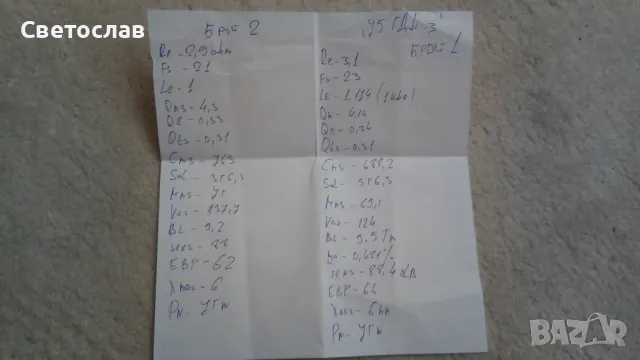 Светослав
Брой 2
Re - 2,9 ohm
Fs - 21
Le - 1
Qms - 4,3
Qe - 0,33
Qts - 0,31
Cms - 763
Sd - 346,3
Mms - 74
Vas - 137,7
BL - 9,2
sens - 88
EBP - 62
Xmax - 6
"75 ГДН-3"
БРОЙ 1
Re - 3,1
Fs - 23
Le - 1,174 (1 kHz)
Qm - 4,14
Qe - 0,34
Qts - 0,31
Cms - 688,2
Sd - 346,3
Mms - 69,1
Vas - 124
BL - 9,5 Tm
0,481%
sens - 88,4 dB
EBP - 66
Xmax - 6 mm
BAZAR
bg